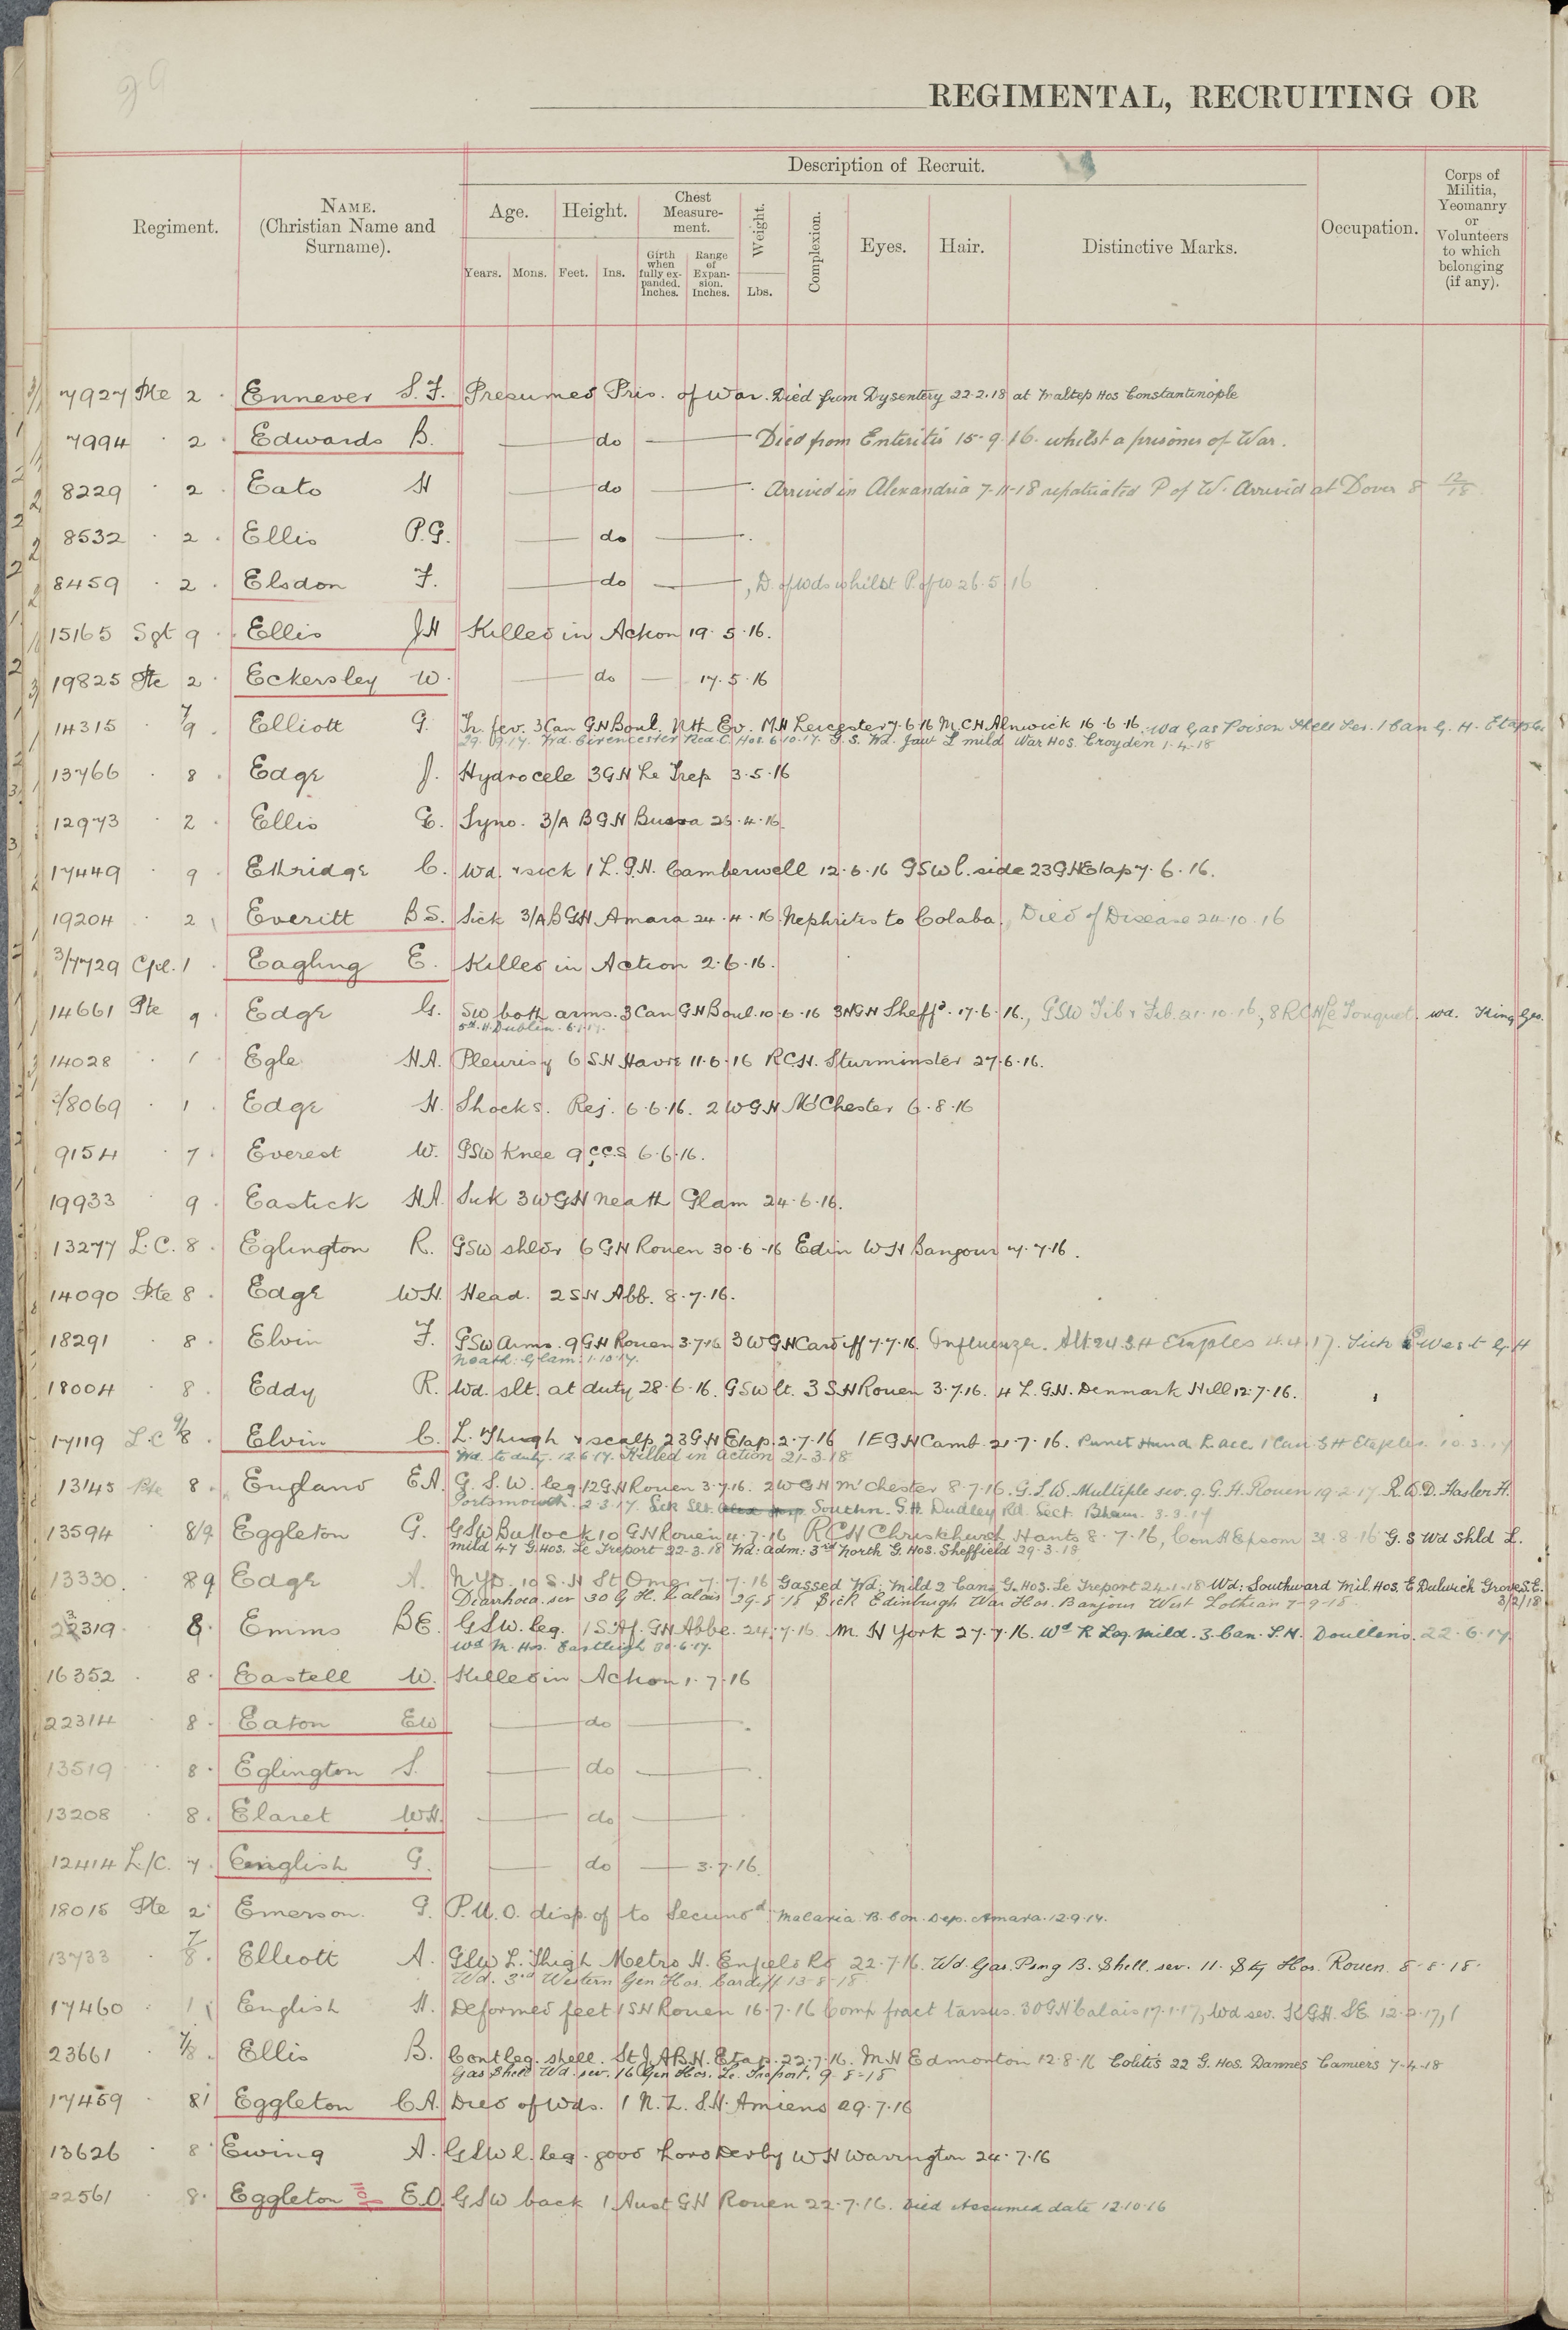 REGIMENTAL, RECRUITING OR
Regiment.
NAME.
(Christian Name and
Surname).
Description of Recruit.
Age.
Years. Mons.
Height.
Feet. Ins.
Chest
Measure-
ment.
Girth
when
fully ex-
panded.
Inches.
Range
of
Expan-
sion.
Inches.
Weight.
Lbs.
Complexion.
Eyes.
Hair.
Distinctive Marks.
Occupation.
Corps of
Militia,
Yeomanry
or
Volunteers
to which
belonging
(if any).
7927 Pte 2 Ennever S.F. Presumed Pris. of War. Died from Dysentery 22.2.18 at Maltep Hos Constantinople
7994 " 2 Edwards B. — do — Died from Enteritis 15.9.16. whilst a prisoner of War.
8229 " 2 Eato H — do — Arrived in Alexandria 7-11-18 repatriated P of W. Arrived at Dover 8 12/18
8532 " 2 Ellis P.G. — do —
8459 " 2 Elsdon F. — do —, D. of Wds whilst P. of W 26.5.16
15165 Sgt 9 Ellis JH Killed in Action 19.5.16.
19825 Pte 2 Eckersley W. — do — 17.5.16
14315 " 7/9 Elliott G. Tr. fev. 3 Can GH Boul. Nth Ev. MH Leicester 7.6.16 M.C.H Alnwick 16.6.16. Wd Gas Poison Shell Sev. 1 Can G. H. Etaples
29.9.17. Wd. Cirencester Red C. Hos. 6.10.17. G. S. Wd. Jaw L mild War Hos. Croyden 1.4.18
13766 " 8 Edge J. Hydrocele 3 GH Le Trep 3.5.16
12973 " 2 Ellis E. Syno. 3/A B GH Busra 26.4.16.
17449 " 9 Ethridge C. Wd. & sick 1 L. G.H. Camberwell 12.6.16 GSW l. side 23 GH Etap 7.6.16.
19204 " 2 Everitt BS. Sick 3/A B GH Amara 24.4.16. Nephritis to Colaba., Died of Disease 24.10.16
3/7729 Cpl. 1 Eagling E. Killed in Action 2.6.16.
14661 Pte 9 Edge G. SW both arms. 3 Can GH Boul. 10.6.16 3NGH Sheffd. 17.6.16., GSW Tib & Fib. 21.10.16, 8 RCH Le Touquet. wd. King Geo.
5th. H. Dublin. 6.1.17.
14028 1 Egle HA. Pleurisy 6 SH Havre 11.6.16 RCH. Sturminster 27.6.16.
3/8069 " 1 Edge H. Shock S. Rej. 6.6.16. 2 WGH M'Chester 6.8.16
9154 " 7 Everest W. GSW Knee 9 CCS 6.6.16.
19933 " 9 Eastick HA. Sick 3 WGH Neath Glam 24.6.16.
13277 L.C. 8 Eglington R. GSW shldr 6 GH Rouen 30.6.16 Edin WH Bangour 7.7.16.
14090 Pte 8 Edge WH. Head. 2 SH Abb. 8.7.16.
18291 " 8 Elvin F. GSW Arms. 9 GH Rouen 3.7.16 3 WGH Cardiff 7.7.16. Influenza. Slt. 24. G.H Etaples 4.4.17. Sick West G H
Neath: Glam: 1.10.17.
18004 " 8 Eddy R. Wd. slt. at duty 28.6.16. GSW lt. 3 SH Rouen 3.7.16. 4 L. G.H. Denmark Hill 12.7.16.
17119 L.C 9/8 Elvin C. L. Thigh & scalp 23 GH Etap. 2.7.16 1 EGH Camb. 21.7.16. Punct Hand L. acc. 1 Can G H Etaples. 10.3.17
Wd. to duty. 12.6.17. Killed in Action 21-3-18.
13145 Pte 8 England EA. G. S. W. leg 12 GH Rouen 3.7.16. 2 WGH M'chester 8.7.16. G.S.W. Multiple sev. 9. G.H. Rouen 19.2.17. R.A.D. Hasler H.
Portsmouth. 2.3.17. Sck Slt. Southn. G.H. Dudley Rd. Sect. Bham. 3.3.17
13594 8/9 Eggleton G. GSW Buttock 10 GH Rouen 4.7.16 RCH Christchurch Hants 8.7.16, Con H Epsom 31.8.16 G.S Wd Shld L.
mild 47 G. Hos. Le Treport 22-3-18 Wd: adm: 3rd North G. Hos. Sheffield 29-3-18.
13330. 8 9 Edge A. NYD. 10 S.H St Omer 7.7.16 Gassed Wd: Mild 2 Can: G. Hos. Le Treport 24-1-18 Wd: Southward Mil. Hos. E Dulwich Grove S.E.
3/2/18
Diarrhoea. sev 30 G H. Calais 29-8-18 Sick Edinburgh War Hos. Bangour West Lothian 7-9-18
23319 8. Emms BE. GSW. leg. 1 S. Af. GH Abbe. 24.7.16 M. H York 27.7.16. Wd R Leg. mild. 3. Can. S.H. Doullens. 22.6.17.
Wd M. Hos. Eastleigh 30.6.17.
16352 8 Eastell W. Killed in Action 1.7.16
22314 " 8 Eaton EW — do —
13519 " 8 Eglington S. — do —
13208 " 8 Elaret WH. — do —
12414 L/C. 7 English G. — do — 3.7.16.
18015 Pte 2 Emerson. G. P.U.O. disp. of to Secund. Malaria B. Con. Dep. Amara. 12.9.17.
13733 " 7/8 Elliott A. GSW L. Thigh Metro H. Enfield Rd 22.7.16. Wd. Gas. Psng B. Shell. sev. 11. Sty Hos. Rouen 8-8-18.
Wd. 3rd Western Gen Hos. Cardiff 13-8-18
17460 " 1 English H. Deformed feet 1 SH Rouen 16.7.16 Comp fract tarsus. 30 GH Calais 17.1.17, Wd sev. KGH. SE 12.2.17,
23661 " 7/8 Ellis B. Cont leg. shell. St J. A B. H. Etap. 22.7.16. MH Edmonton 12.8.16 Colitis 22 G. Hos. Dannes Camiers 7-4-18
Gas Shell Wd. sev. 16 Gen Hos. Le Treport. 9-8-18
17459 " 8 Eggleton CA. Died of Wds. 1 N.Z. S.H. Amiens 29.7.16
13626 " 8 Ewing A. GSW l. leg. good Lord Derby WH Warrington 24.7.16
22561 " 8 Eggleton E.O. GSW back 1 Aust GH Rouen 22.7.16. Died Assumed date 12.10.16